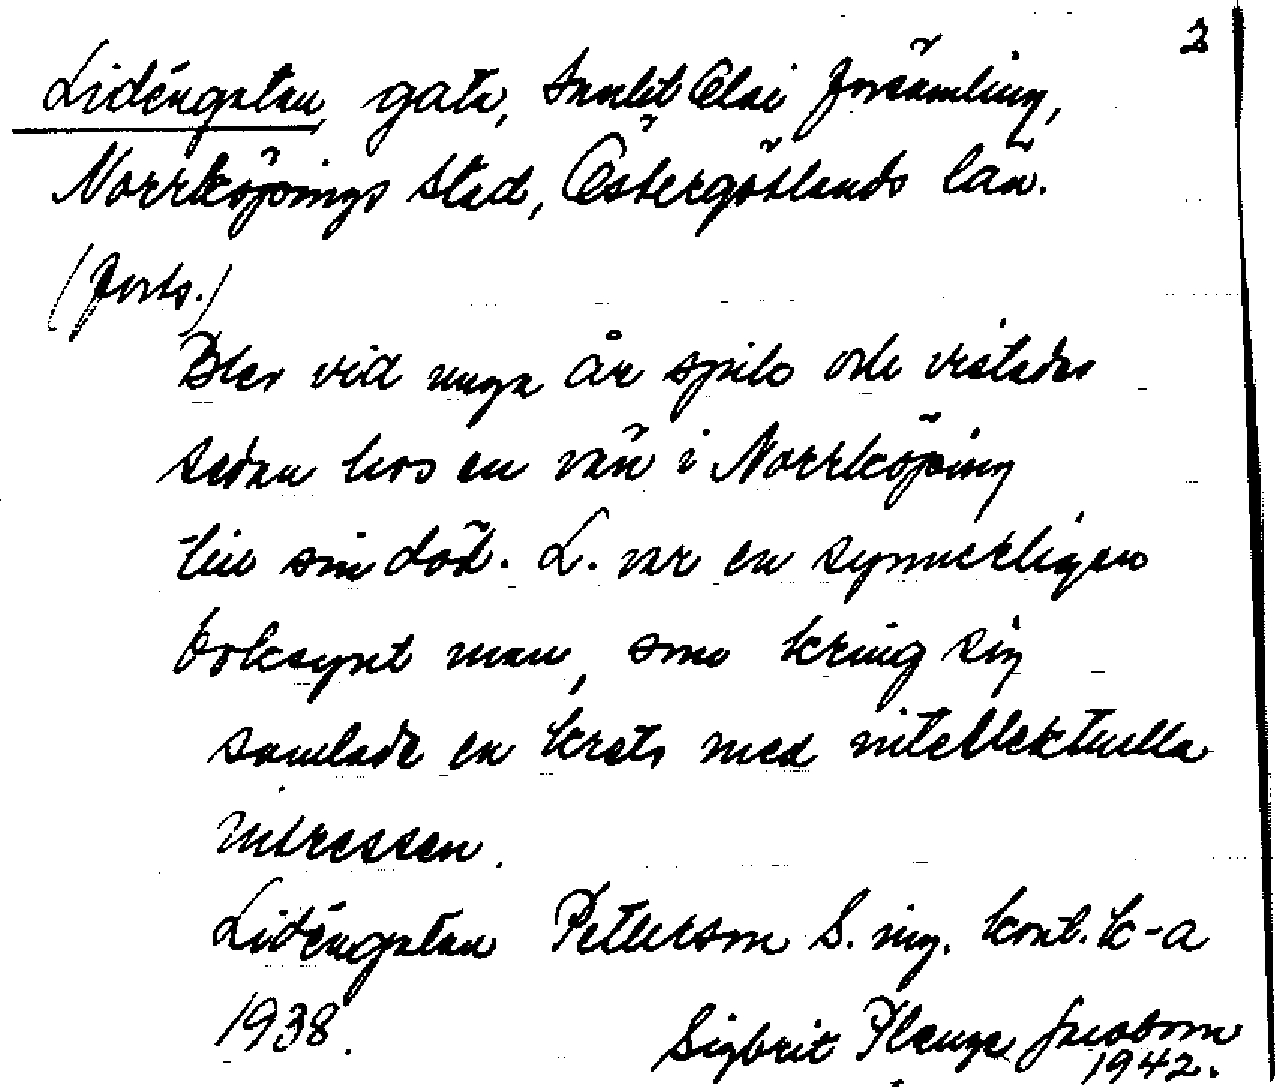 2
Lidéngatan, gata, Sankt Olai församling,
Norrköpings stad, Östergötlands län.
(forts.)
Blev vid unga år sjuk och vistades
sedan hos en vän i Norrköping
till sin död. L. var en synnerligen
boksynt man, som kring sig
samlade en krets med intellektuella
intressen.
Lidéngatan Petterson S. ing. kont. k-a
1938.
Sigbrit Plænge Jacobson
1942.